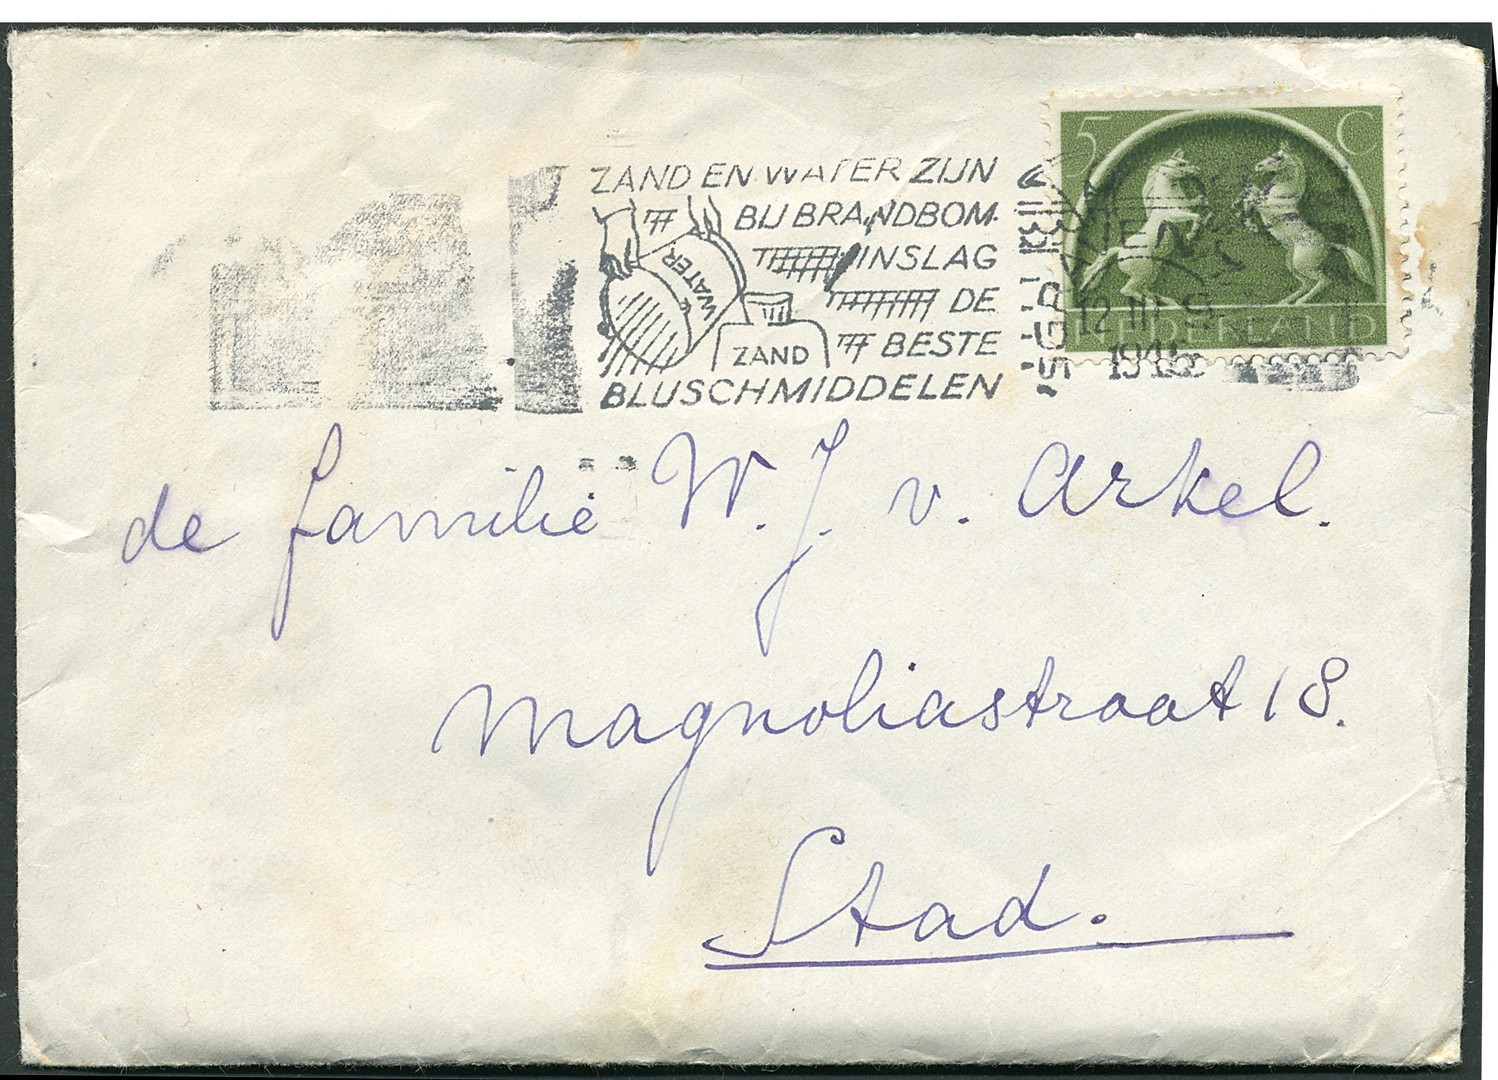 ZAND EN WATER ZIJN
BIJ BRANDBOM-
INSLAG
DE
BESTE
BLUSCHMIDDELEN
WATER
ZAND
5 C
NEDERLAND
12 III 9
1945
de familie W. J. v. Arkel.
Magnoliastraat 18.
Stad.